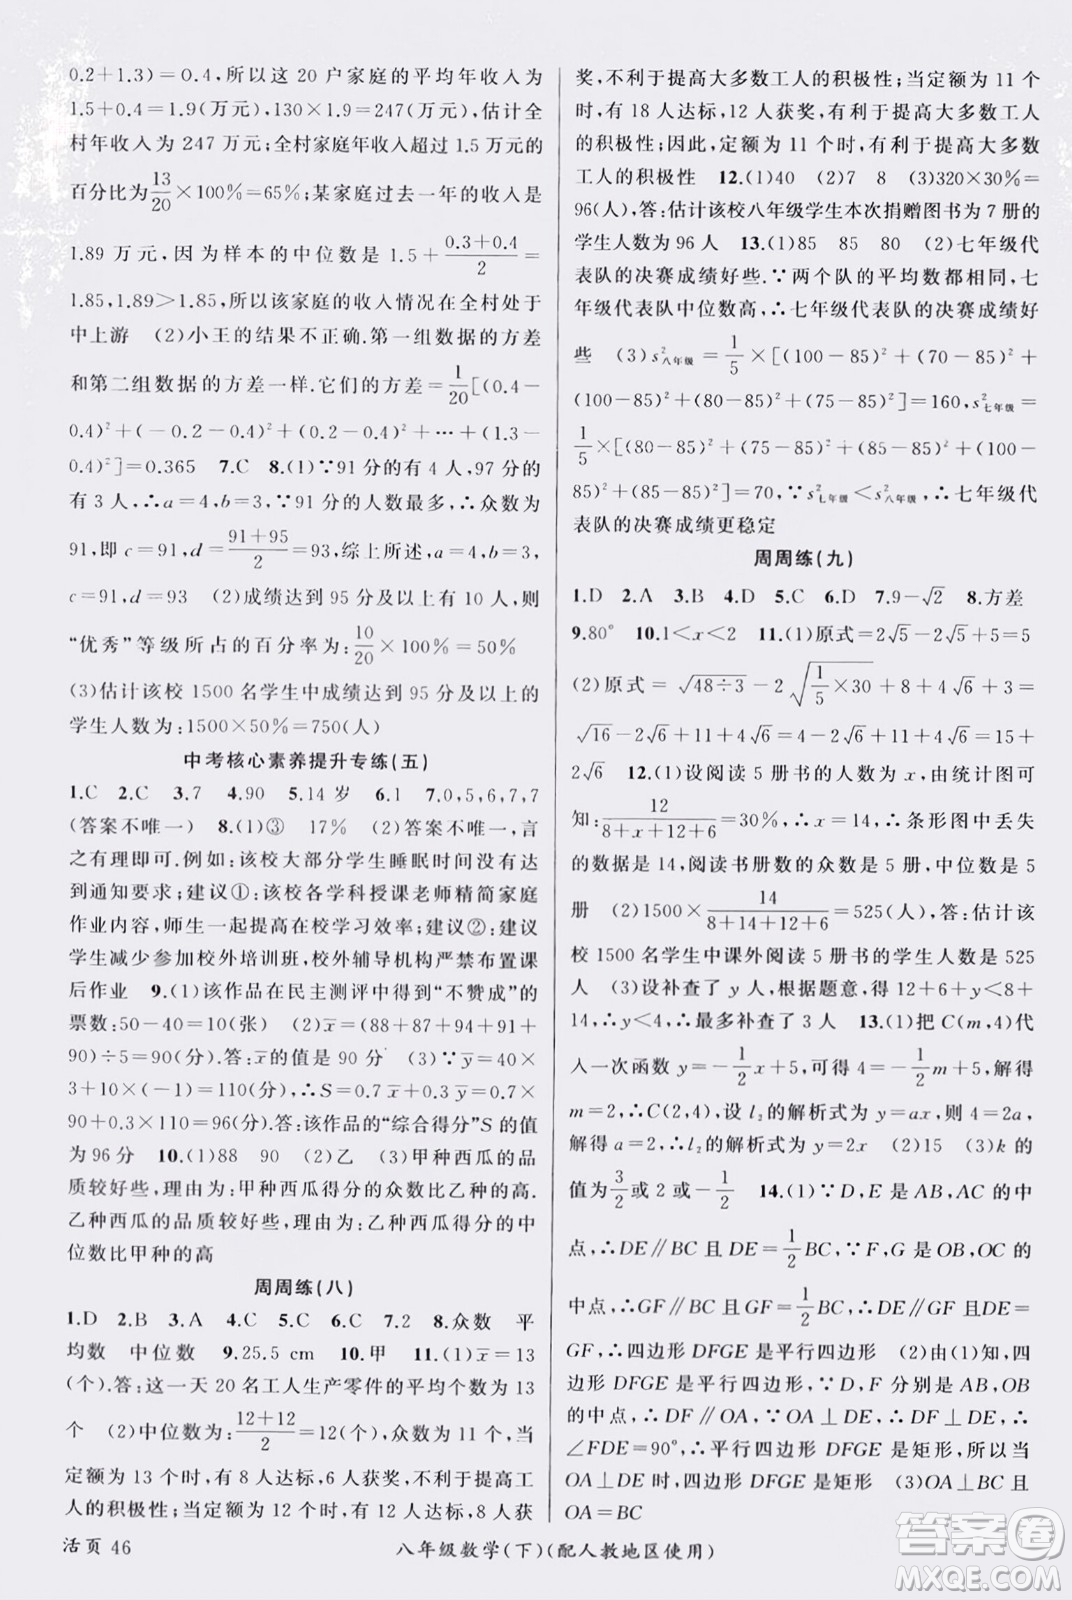 0.2+1.3)=0.4,所以这 20 户家庭的平均年收入为
1.5+0.4=1.9(万元),130×1.9=247(万元),估计全
村年收入为 247 万元;全村家庭年收入超过 1.5 万元的
百分比为13/20×100%=65%;某家庭过去一年的收入是
1.89 万元,因为样本的中位数是 1.5+(0.3+0.4)/2=
1.85,1.89>1.85,所以该家庭的收入情况在全村处于
中上游 (2)小王的结果不正确.第一组数据的方差
和第二组数据的方差一样.它们的方差=1/20[(0.4-
0.4)²+(-0.2-0.4)²+(0.2-0.4)²+…+(1.3-
0.4)²]=0.365 7.C 8.(1)∵91 分的有 4 人,97 分的
有 3 人,∴a=4,b=3,∵91 分的人数最多,∴众数为
91,即 c=91,d=(91+95)/2=93,综上所述,a=4,b=3,
c=91,d=93 (2)成绩达到 95 分及以上有 10 人,则
“优秀”等级所占的百分率为:10/20×100%=50%
(3)估计该校 1500 名学生中成绩达到 95 分及以上的
学生人数为:1500×50%=750(人)
中考核心素养提升专练(五)
1.C 2.C 3.7 4.90 5.14 岁 6.1 7.0,5,6,7,7
(答案不唯一) 8.(1)③ 17% (2)答案不唯一,言
之有理即可.例如:该校大部分学生睡眠时间没有达
到通知要求;建议①:该校各学科授课老师精简家庭
作业内容,师生一起提高在校学习效率;建议②:建议
学生减少参加校外培训班,校外辅导机构严禁布置课
后作业 9.(1)该作品在民主测评中得到“不赞成”的
票数:50-40=10(张) (2)x̄=(88+87+94+91+
90)÷5=90(分).答:x̄的值是 90 分 (3)∵y=40×
3+10×(-1)=110(分),∴S=0.7x̄+0.3y=0.7×
90+0.3×110=96(分).答:该作品的“综合得分”S的值
为96 分 10.(1)88 90 (2)乙 (3)甲种西瓜的品
质较好些,理由为:甲种西瓜的众数比乙种的高.
乙种西瓜的品质较好些,理由为:乙种西瓜得分的中
位数比甲种的高
周周练(八)
1.D 2.B 3.A 4.C 5.C 6.C 7.2 8.众数 平
均数 中位数 9.25.5 cm 10.甲 11.(1)x̄=13
(个).答:这一天 20 名工人生产零件的平均个数为 13
个 (2)中位数为:(12+12)/2=12(个),众数为11 个,当
定额为 13 个时,有 8 人达标,6 人获奖,不利于提高工
人的积极性;当定额为 12 个时,有 12 人达标,8 人获
奖,不利于提高大多数工人的积极性;当定额为 11 个
时,有 18 人达标,12 人获奖,有利于提高大多数工人
的积极性;∴定额为 11 个时,有利于提高大多数
工人的积极性 12.(1)40 (2)7 8 (3)320×30%=
96(人),答:估计该校八年级学生本次捐赠图书为 7 册的
学生人数为 96 人 13.(1)85 85 80 (2)七年级代
表队的决赛成绩好些.∵两个队的平均数都相同,七
年级代表队中位数高,∴七年级代表队的决赛成绩好
些 (3)s²八年级=1/5×[(100-85)²+(70-85)²+
(100-85)²+(80-85)²+(75-85)²]=160,s²七年级=
1/5×[(80-85)²+(75-85)²+(85-85)²+(100-
85)²+(85-85)²]=70,∵s²七年级<s²八年级,∴七年级代
表队的决赛成绩更稳定
周周练(九)
1.D 2.A 3.B 4.D 5.C 6.D 7.9-√2 8.方差
9.80° 10.1<x<2 11.(1)原式=2√5-2√5+5=5
(2)原式=√(48÷3)-2√(1/5×30)+8+4√6+3=
√16-2√6+11+4√6=4-2√6+11+4√6=15+
2√6 12.(1)设阅读 5 册书的人数为 x,由统计图可
知:12/(8+x+12+6)=30%,∴x=14,∴条形图中丢失
的数据是 14,阅读书册数的众数是 5 册,中位数是 5
册 (2)1500×14/(8+14+12+6)=525(人),答:估计该
校 1500 名学生中课外阅读 5 册书的学生人数是 525
人 (3)设补查了 y 人,根据题意,得 12+6+y<8+
14,∴y<4,∴最多补查了 3 人 13.(1)把 C(m,4)代
入一次函数 y=-1/2x+5,可得4=-1/2m+5,解得
m=2,∴C(2,4),设 l₂的解析式为 y=ax,则 4=2a,
解得 a=2,∴l₂的解析式为 y=2x (2)15 (3)k 的
值为3/2或 2 或-1/2 14.(1)∵D,E 是 AB,AC 的中
点,∴DE∥BC 且 DE=1/2BC,∵F,G 是 OB,OC 的
中点,∴GF∥BC 且 GF=1/2BC,∴DE∥GF 且DE=
GF,∴四边形 DFGE 是平行四边形 (2)由(1)知,四
边形 DFGE 是平行四边形,∵D,F 分别是 AB,OB
的中点,∴DF∥OA,∵OA⊥DE,∴DF⊥DE,∴
∠FDE=90°,∴平行四边形 DFGE 是矩形,所以当
OA⊥DE时,四边形 DFGE 是矩形 (3)OA⊥BC 且
OA=BC
活页 46
八年级数学(下)(配人教地区使用)
答案圈
MXQE.COM